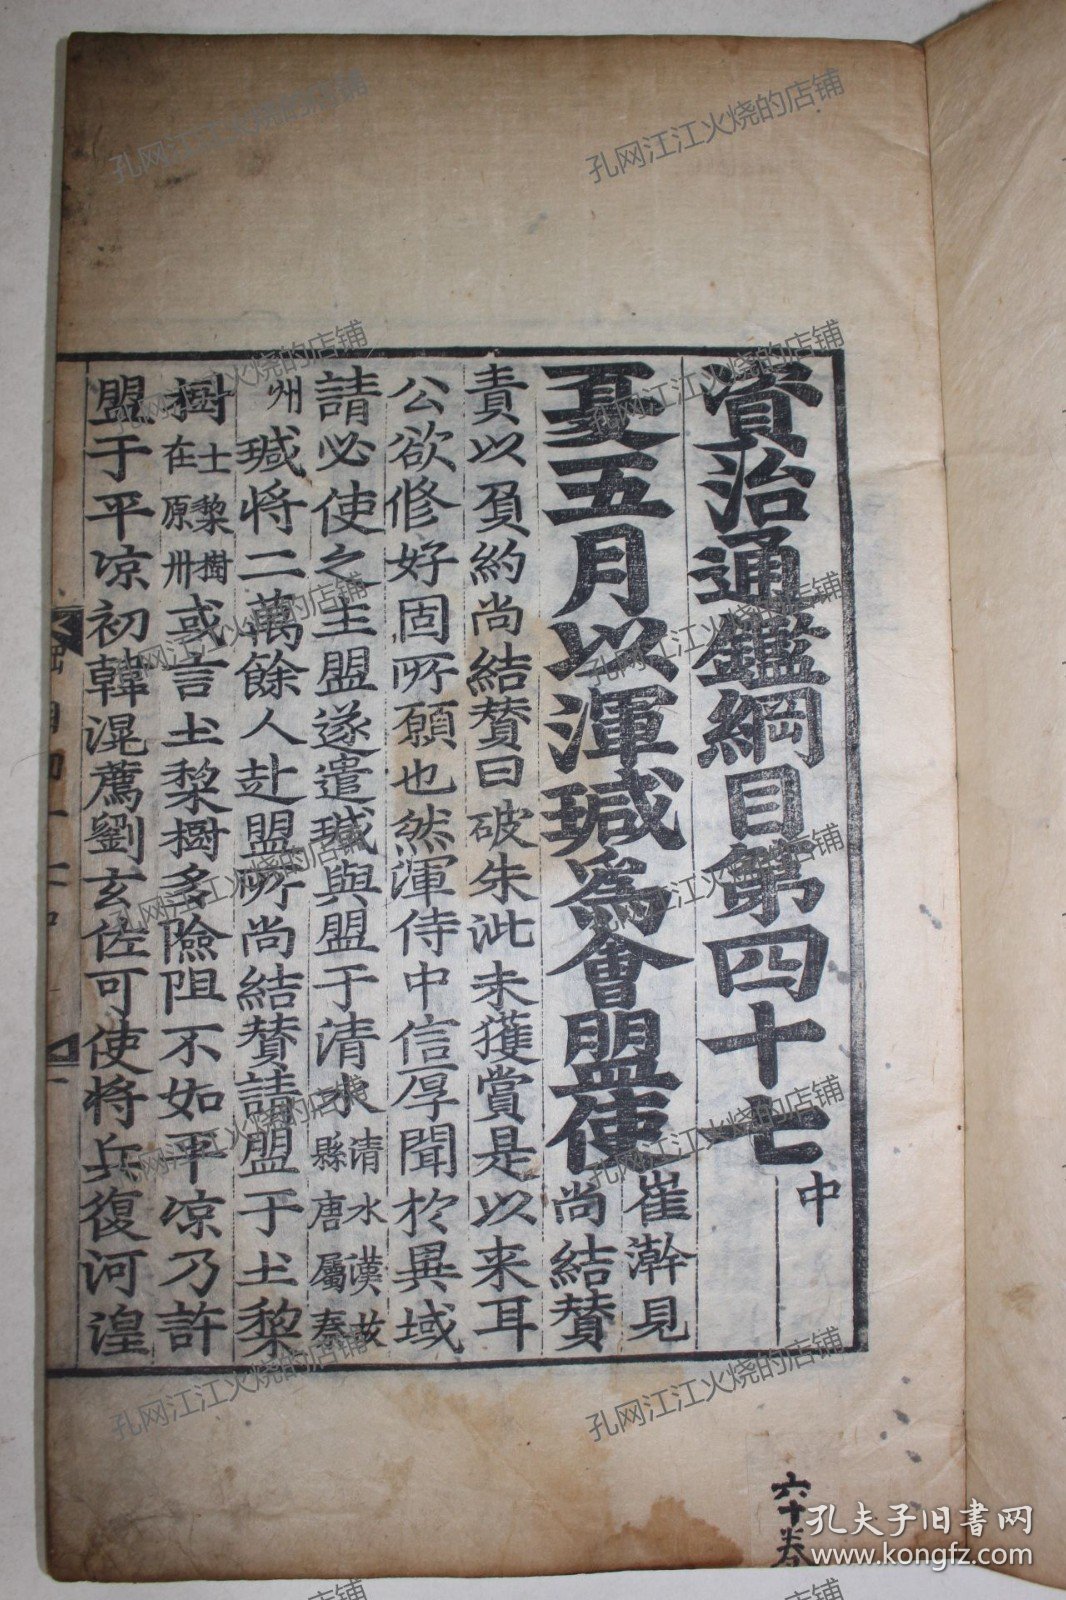 資治通鑑綱目第四十七 中
夏五月以渾瑊為會盟使 崔澣見尚結贊
責以負約尚結贊曰破朱泚未獲賞是以来耳
公欲修好固所願也然渾侍中信厚聞於異域
請必使之主盟遂遣瑊與盟于清水 清水漢故縣唐屬秦
州 瑊将二萬餘人赴盟所尚結贊請盟于土梨
樹 土黎樹在原州 或言土梨樹多險阻不如平凉乃許
盟于平凉初韓滉薦劉玄佐可使将兵復河湟
六十卷
孔夫子旧书网
www.kongfz.com
孔网江江火烧的店铺